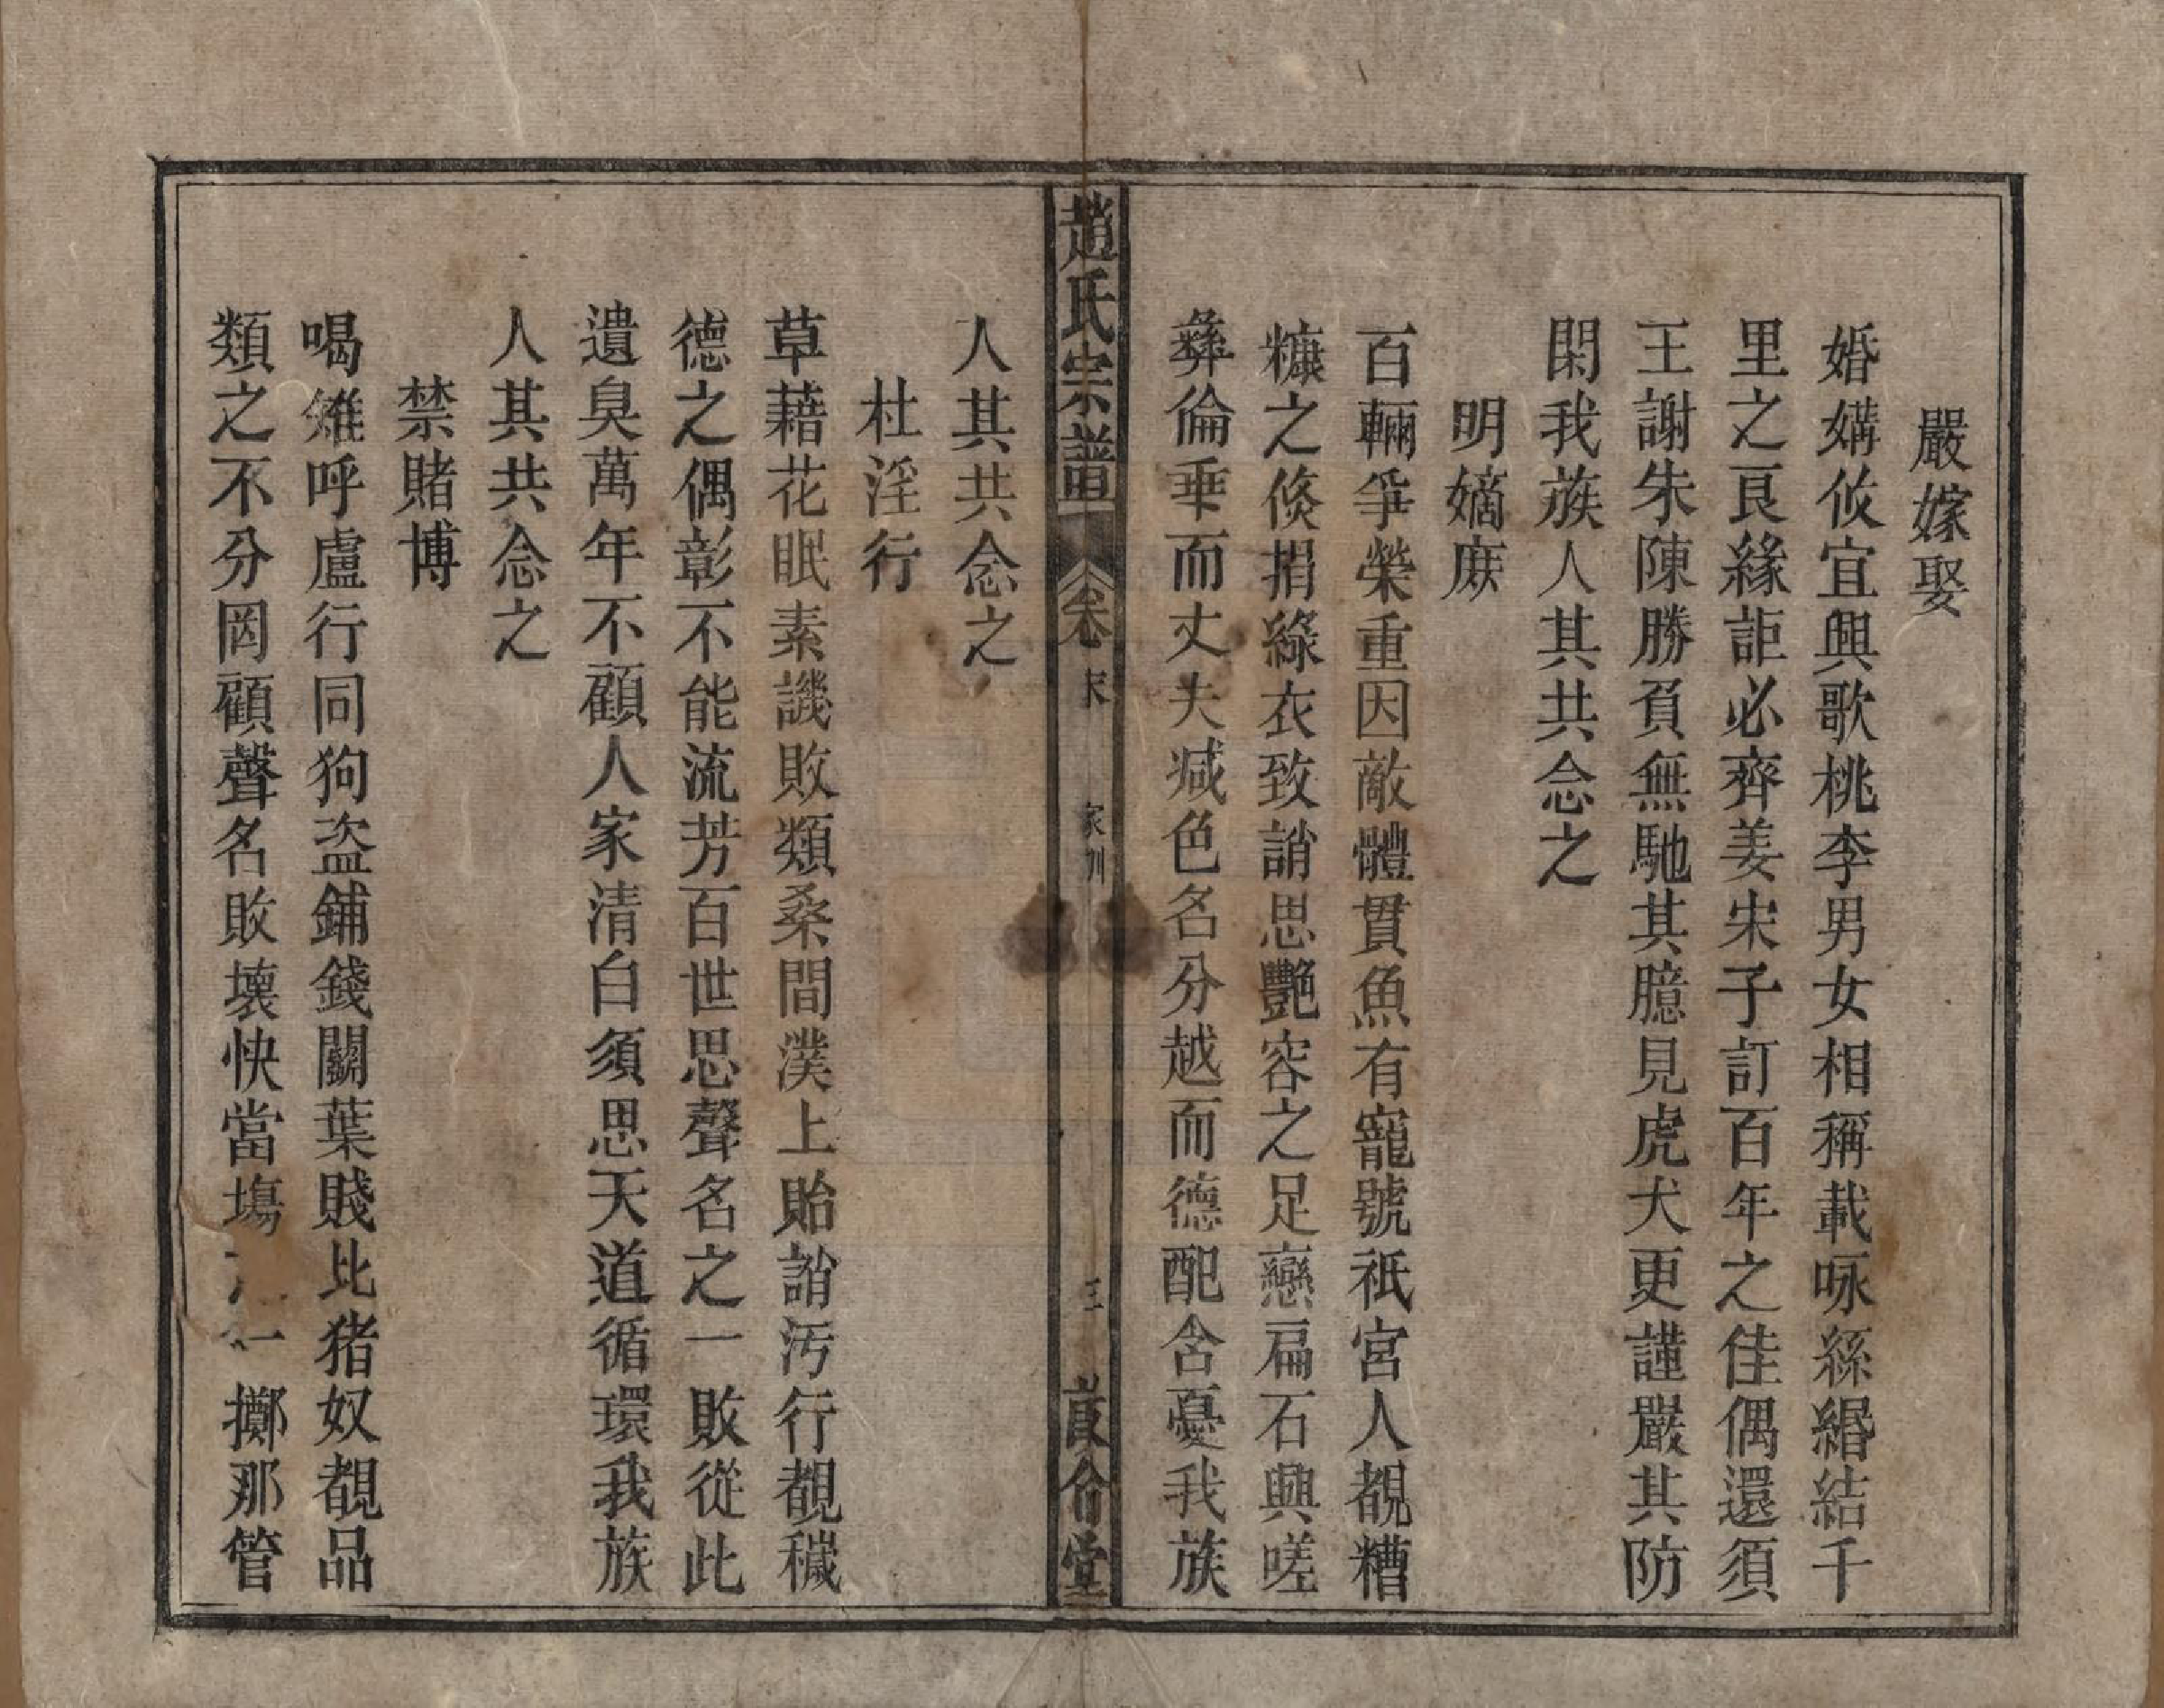 嚴嫁娶
婚媾攸宜興歌桃李男女相稱載咏絲緡結千
里之良緣詎必齊姜宋子訂百年之佳偶還須
王謝朱陳勝負無馳其臆見虎犬更謹嚴其防
閑我族人其共念之
明嫡庶
百輛爭榮重因敵體貫魚有寵號祇宮人覩糟
糠之倐捐綠衣致誚思艷容之足戀扁石興嗟
彝倫垂而丈夫减色名分越而德配含憂我族
趙氏宗譜
卷末
家训
三
敍倫堂
人其共念之
杜淫行
草藉花眠素譏敗類桑間濮上貽誚汚行覩穢
德之偶彰不能流芳百世思聲名之一敗從此
遺臭萬年不顧人家清白須思天道循環我族
人其共念之
禁賭博
喝雉呼盧行同狗盗鋪錢鬭葉賤比猪奴覩品
類之不分罔顧聲名敗壞快當塲一擲那管